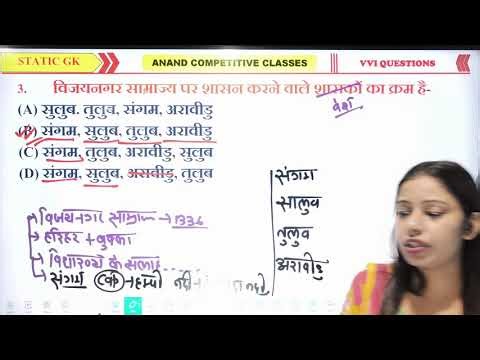 STATIC GK
ANAND COMPETITIVE CLASSES
VVI QUESTIONS
3. विजयनगर साम्राज्य पर शासन करने वाले शासकों का क्रम है-
वंशों
(A) सुलुब. तुलुब, संगम, अरावीडु
(B) संगम, सुलुब, तुलुब, अरावीडु
(C) संगम, तुलुब, अरावीडु, सुलुब
(D) संगम, सुलुब, अरावीडु, तुलुब
संगम
सालुव
तुलुव
अरावीडु
विजयनगर साम्राज्य → 1336
हरिहर + बुक्का
विद्यारण्य के सलाह
संगम हम्पी नदी